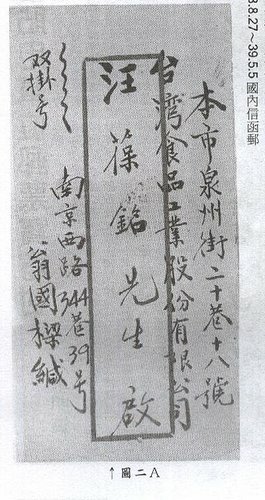 3.8.27～39.5.5 國內信函郵
本市泉州街二十巷十八號
台湾食品工業股份有限公司
汪葆銘先生啟
南京西路344巷39号
翁國樑緘
双掛号
↑圖二A